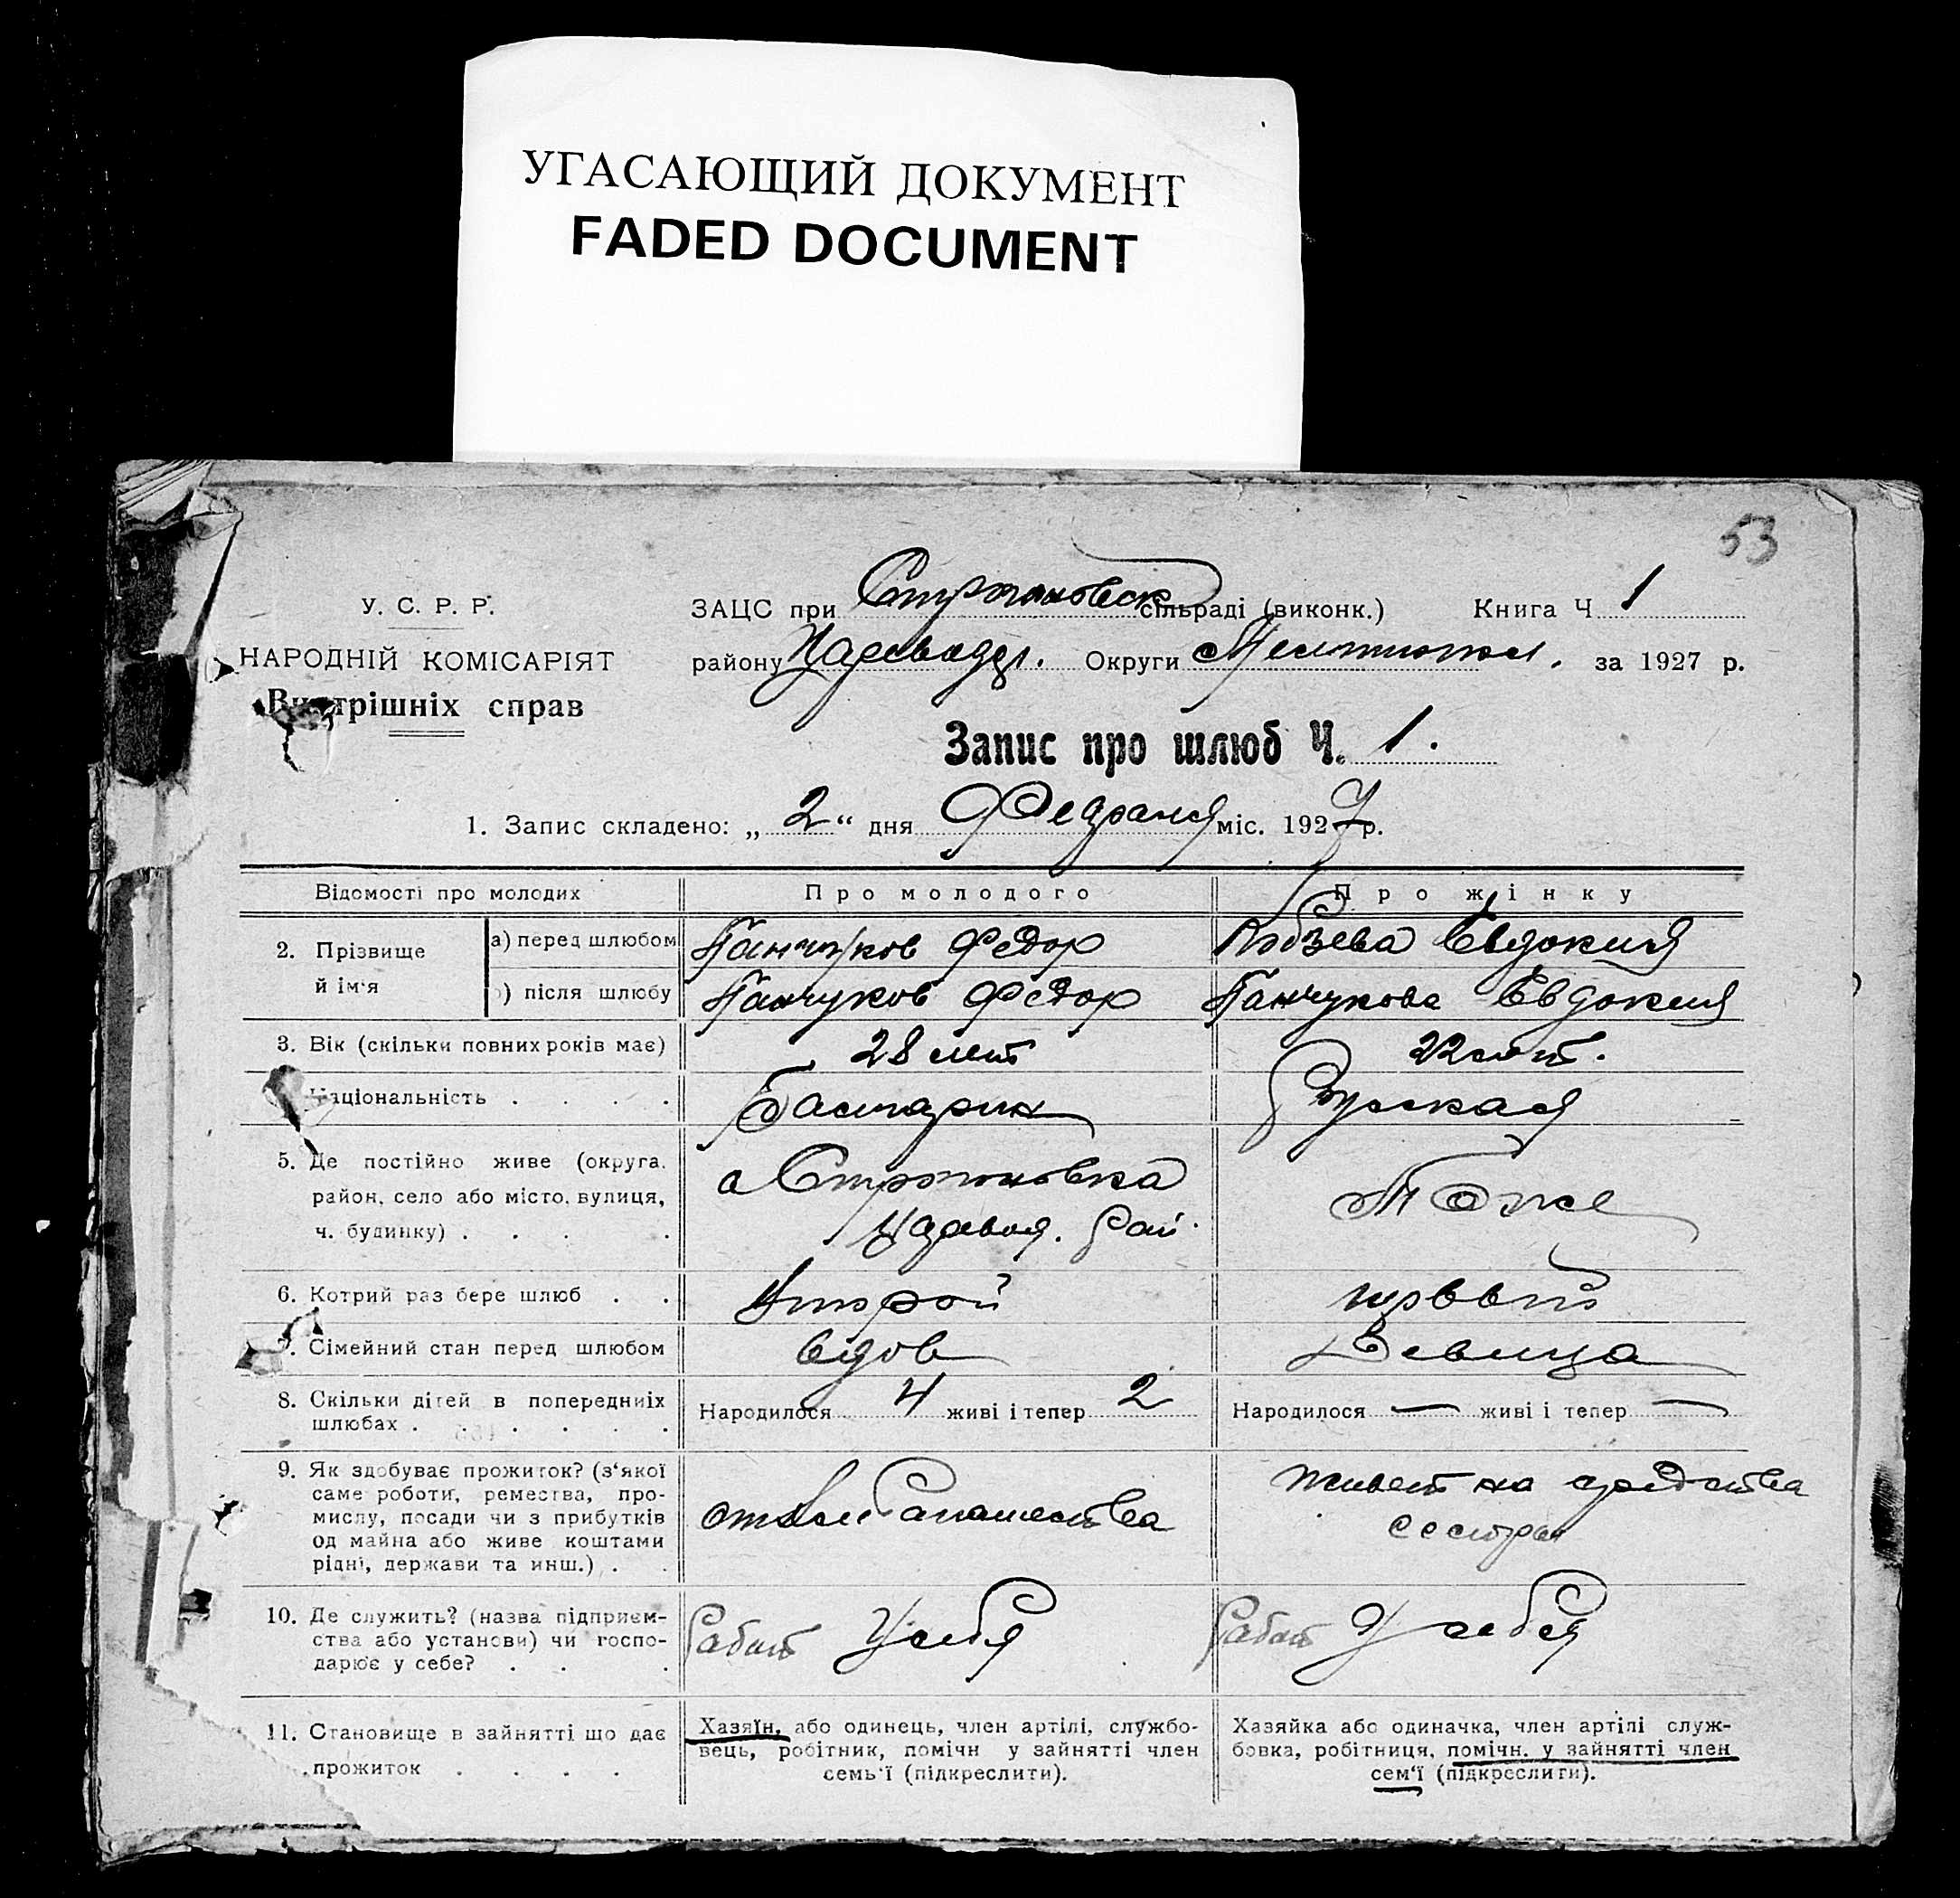 УГАСАЮЩИЙ ДОКУМЕНТ
FADED DOCUMENT
53
У. С. Р. Р.
НАРОДНІЙ КОМІСАРІЯТ
Внутрішніх справ
ЗАЦС при Строгановск сільраді (виконк.) Книга Ч 1
району Царевод. Округи Мелитопол. за 1927 р.
Запис про шлюб Ч. 1.
1. Запис складено: „ 2 “ дня Февраля міс. 1927 р.
Відомості про молодих Про молодого Про жінку
2. Прізвище й ім‘я
а) перед шлюбом Ганчуков Федор Кобзева Евдокия
) після шлюбу Ганчуков Федор Ганчукова Евдокия
3. Вік (скільки повних років має) 28 лет 22 лет.
Національність . . . . Болгарин Русская
5. Де постійно живе (округа, район, село або місто, вулиця, ч. будинку) . . . .
с Строгановка
Царевод. Рай.
Тоже
6. Котрий раз бере шлюб . . Второй первый
7. Сімейний стан перед шлюбом вдов Девица
8. Скільки дітей в попередніх шлюбах . . . . . .
Народилося 4 живі і тепер 2 Народилося — живі і тепер —
9. Як здобуває прожиток? (з‘якої
саме роботи, ремества, про-
мислу, посади чи з прибутків
од майна або живе коштами
рідні, держави та инш.) . .
от хлебопашества
живет на средства
сестры
10. Де служить? (назва підприєм-
ства або установи) чи госпо-
дарює у себе? . . .
Работ У себя Работ У себя
11. Становище в зайнятті що дає
прожиток . . . .
Хазяїн, або одинець, член артілі, службо-
вець, робітник, помічн у зайнятті член
семь‘ї (підкреслити).
Хазяйка або одиначка, член артілі служ-
бовка, робітниця, помічн. у зайнятті член
сем‘ї (підкреслити).